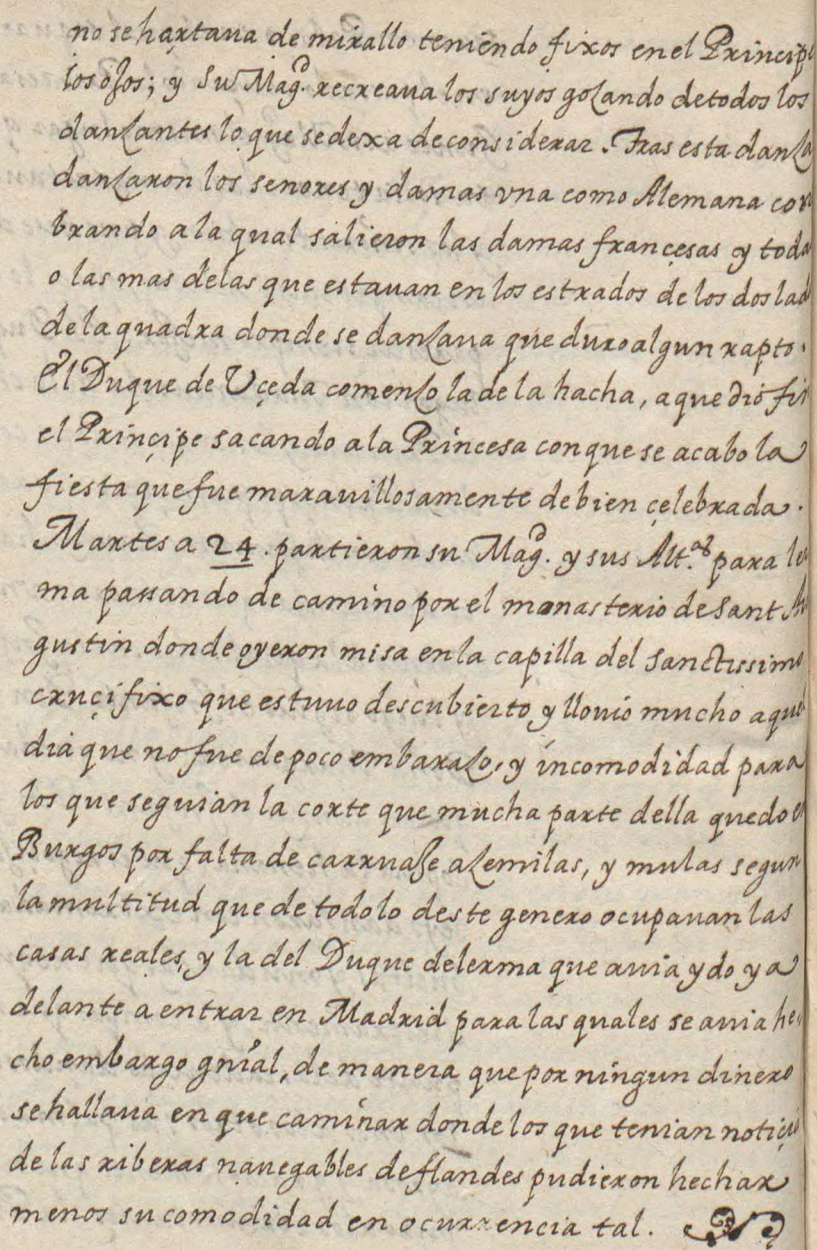 no se hartaua de mirallo teniendo fixos en el Princip
los ojos; y Su Mag.d recreaua los suyos goçando de todos los
dançantes lo que se dexa de considerar. Tras esta dança
dançaron los senores y damas vna como Alemana con
brando a la qual salieron las damas françesas y toda
o las mas de las que estauan en los estrados de los dos lad
de la quadra donde se dançaua que duro algun rapto.
El Duque de Uçeda començo la de la hacha, a que dio fin
el Prinçipe sacando a la Princesa con que se acabo la
fiesta que fue marauillosamente de bien çelebrada.
Martes a 24. partieron su Mag.d y sus Alt.as para ler
ma passando de camino por el monasterio de Sant Au
gustin donde oyeron misa en la capilla del sanctissimo
cruçifixo que estuuo descubierto y llouió mucho aquel
dia que no fue de poco embaraço, y incomodidad para
los que seguian la corte que mucha parte della quedo en
Burgos por falta de carruaje açemilas, y mulas segun
la multitud que de todo lo deste genero ocupauan las
casas reales, y la del Duque de lerma que auia ydo ya
delante a entrar en Madrid para las quales se auia he
cho embargo gníal, de manera que por ningun dinero
se hallaua en que caminar donde los que tenian notiçia
de las riberas nauegables de flandes pudieron hechar
menos su comodidad en ocurrencia tal.